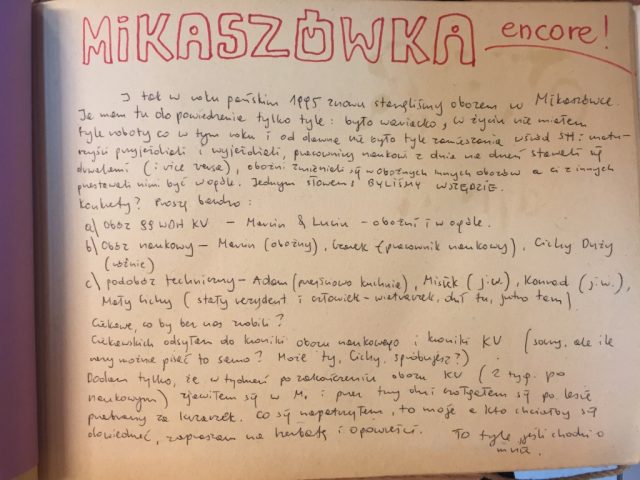 MIKASZÓWKA encore!
I tak w roku pańskim 1995 znowu stanęliśmy obozem w Mikaszówce.
Ja mam tu do powiedzenia tylko tyle: było wariacko, w życiu nie miałem
tyle roboty co w tym roku i od dawna nie było tyle zamieszania wśród SH: matu-
rzyści przyjeżdżali i wyjeżdżali, pracownicy naukowi z dnia na dzień stawali się
druhami (i vice versa), oboźni zmieniali się w oboźnych innych obozów a ci z innych
przestawali nimi być w ogóle. Jednym słowem: BYLIŚMY WSZĘDZIE.
Konkrety? Proszę bardzo:
a) Obóz 99 WDH KV – Marcin & Lucin – oboźni i w ogóle.
b) Obóz naukowy – Marcin (oboźny), Czarek (pracownik naukowy), Cichy Duży
(różnie)
c) podobóz techniczny – Adam (kuchnia), Misiek (j.w.), Konrad (j.w.),
Mały Cichy (stały rezydent i człowiek-wiatraczek, dziś tu, jutro tam)
Ciekawe, co by bez nas zrobili?
Ciekawskich odsyłam do kroniki obozu naukowego i kroniki KV (sorry, ale ile
razy można pisać to samo? Może ty, Cichy, spróbujesz?)
Dodam tylko, że w tydzień po zakończeniu obozu KV (2 tyg. po
naukowym) zjawiłem się w M. i przez trzy dni czołgałem się po lesie
przebrany za krzaczek. Co się napatrzyłem, to moje a kto chciałby się
dowiedzieć, zapraszam na herbatę i opowieści. To tyle jeśli chodzi o
mnie.